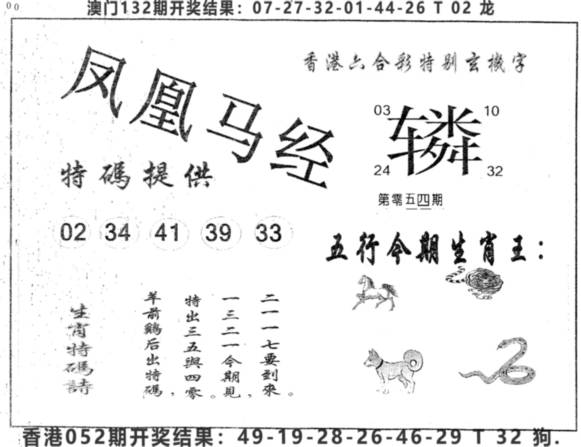 00
澳门132期开奖结果：07-27-32-01-44-26 T 02 龙
凤凰马经
香港六合彩特别玄機字
03
10
辚
24
32
第零五四期
特碼提供
02 34 41 39 33
五行今期生肖王：
二一一七要到來。
一三二一今期見，
特出三五與四零。
羊前鷄后出特碼，
生肖特碼詩
香港052期开奖结果：49-19-28-26-46-29 T 32 狗.